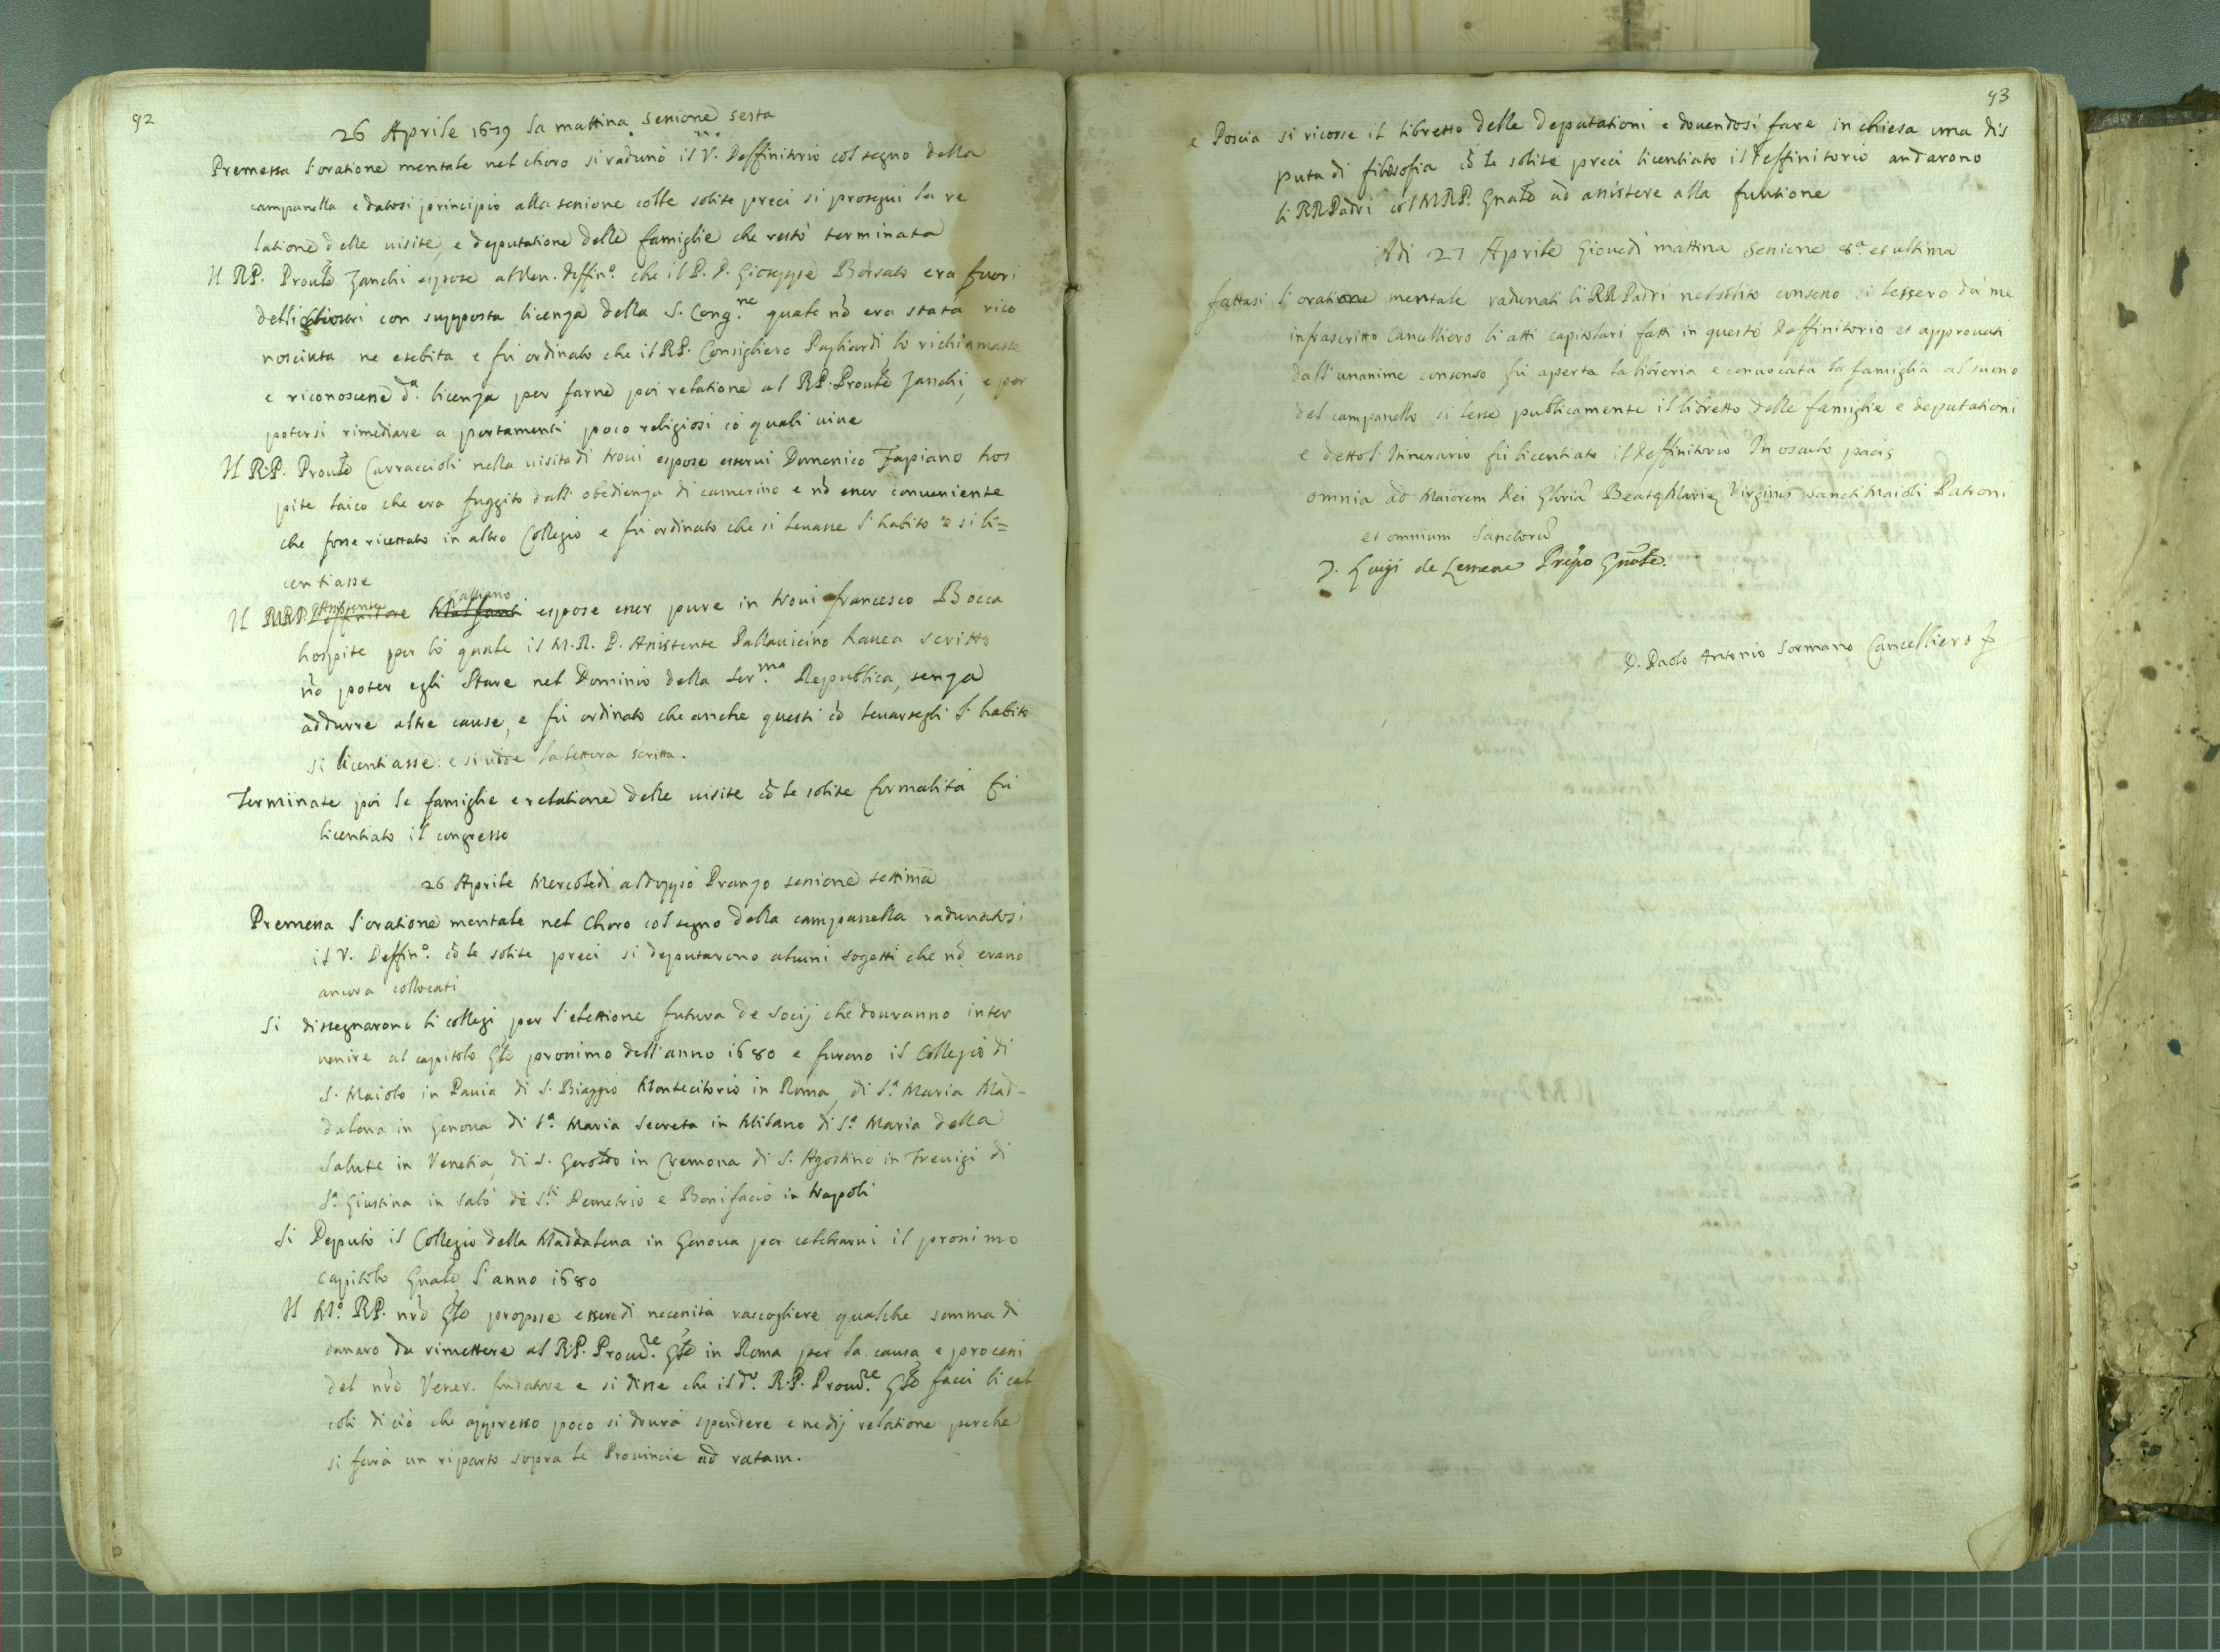 92
26 Aprile 1679 la mattina sessione sesta
Premessa l'oratione mentale nel choro si radunò il V. Deffinitorio col segno della
campanella e datosi principio alla sessione colle solite preci si proseguì la re
latione delle visite, e deputatione delle famiglie che restò terminata
Il RP. Proule Zanchi espose al Ven. Deffin.o che il P. D. Gioseppe Borsato era fuori
delli chiostri con supposta licenza della S. Cong.ne quale nō era stata rico
nosciuta ne esebita e fù ordinato che il RP. Consigliero Pagliardi lo richiamasse
e riconoscesse d.a licenza per farne poi relatione al RP. Proule Zanchi, e per
potersi rimediare a portamenti poco religiosi cō quali uiue
Il R.P. Proule Carraccioli nella uisita di troui espose esserui Domenico Fapiano hos
pite laico che era fuggito dall' obedienza di camerino e nō esser conueniente
che fosse ricettato in altro Collegio e fù ordinato che si leuasse l'habito e si li=
centiasse
Il MRP. Assistente Gassano espose esser pure in troui francesco Bocca
hospite per lo quale il M.R.P. Assistente Pallauicino hauea scritto
nō poter egli stare nel Dominio della Ser.ma Republica, senza
addurre altre cause, e fù ordinato che anche questi cō leuarsegli l'habito
si licentiasse: e si uidde la lettera scritta.
Terminate poi le famiglie e relatione delle uisite cō le solite formalità fù
licentiato il congresso
26 Aprile Mercoledì al doppo Pranzo sessione settima
Premessa l'oratione mentale nel Choro col segno della campanella radunatosi
il V. Deffin.o cō le solite preci si deputarono alcuni sogetti che nō erano
ancora collocati
Si dissegnarono li collegi per l'elettione futura de Socij che douranno inter
uenire al capitolo Gle prossimo dell'anno 1680 e furono il Collegio di
S. Maiolo in Pauia di S. Biaggio Montecitorio in Roma, di S.a Maria Mad-
dalena in Genoua di S.a Maria Secreta in Milano di S.a Maria della
Salute in Venetia, di S. Gerolo in Cremona di S. Agostino in Treuigi di
S.a Giustina in Salò de S.ti Demetrio e Bonifacio in Napoli
Si Deputò il Collegio della Maddalena in Genoua per celebrarui il prossimo
capitolo Gnale l'anno 1680
Il M.o RP. nrō Gle propose essere di necessità raccogliere qualche somma di
danaro da rimettere al R.P. Procu.re Gle in Roma per la causa, e processi
del nrō Vener. fondatore e si disse che il d.o R.P. Procu.re Gle facci li cal
coli di ciò che appresso poco si dourà spendere e ne dij relatione perche
si farà un riparto sopra le Prouincie ad ratam.
93
e Poscia si ricosse il libretto delle deputationi e douendosi fare in chiesa una dis
puta di filosofia cō le solite preci licentiato il Deffinitorio andarono
li RR Padri col MRP. Gnale ad assistere alla funtione
Adi 27 Aprile Giouedì mattina Sessione 8.a et ultima
fattasi l'oratione mentale radunati li RR Padri nel solito consesso si lessero da me
infrascritto Cancelliero li atti capitolari fatti in questo Deffinitorio et approuati
dall'unanime consenso fù aperta la libreria e conuocata la famiglia al suono
del campanello si lesse publicamente il libretto delle famiglie e deputationi
e detto l'Itinerario fù licentiato il Deffinitorio In osculo pacis
omnia ad Maiorem Dei Gloriā Beatę Marię Virginis sancti Maioli Patroni
et omnium Sanctorū
D. Luigi de Lemene Prepo Gnale.
D. Paolo Antonio Sormano Cancelliero